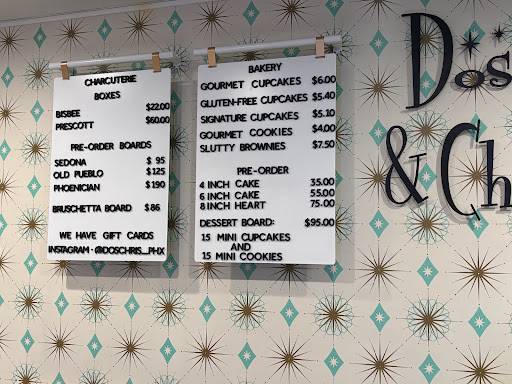 CHARCUTERIE
BOXES
BISBEE $22.00
PRESCOTT $60.00
PRE-ORDER BOARDS
SEDONA $ 95
OLD PUEBLO $125
PHOENICIAN $190
BRUSCHETTA BOARD $86
WE HAVE GIFT CARDS
INSTAGRAM · @DOSCHRIS_PHX
BAKERY
GOURMET CUPCAKES $6.00
GLUTEN-FREE CUPCAKES $5.40
SIGNATURE CUPCAKES $5.10
GOURMET COOKIES $4.00
SLUTTY BROWNIES $7.50
PRE-ORDER
4 INCH CAKE 35.00
6 INCH CAKE 55.00
8 INCH HEART 75.00
DESSERT BOARD: $95.00
15 MINI CUPCAKES
AND
15 MINI COOKIES
Dos
& Ch